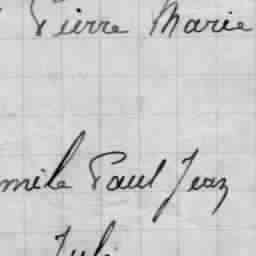 Pierre Marie
mile Paul Jean